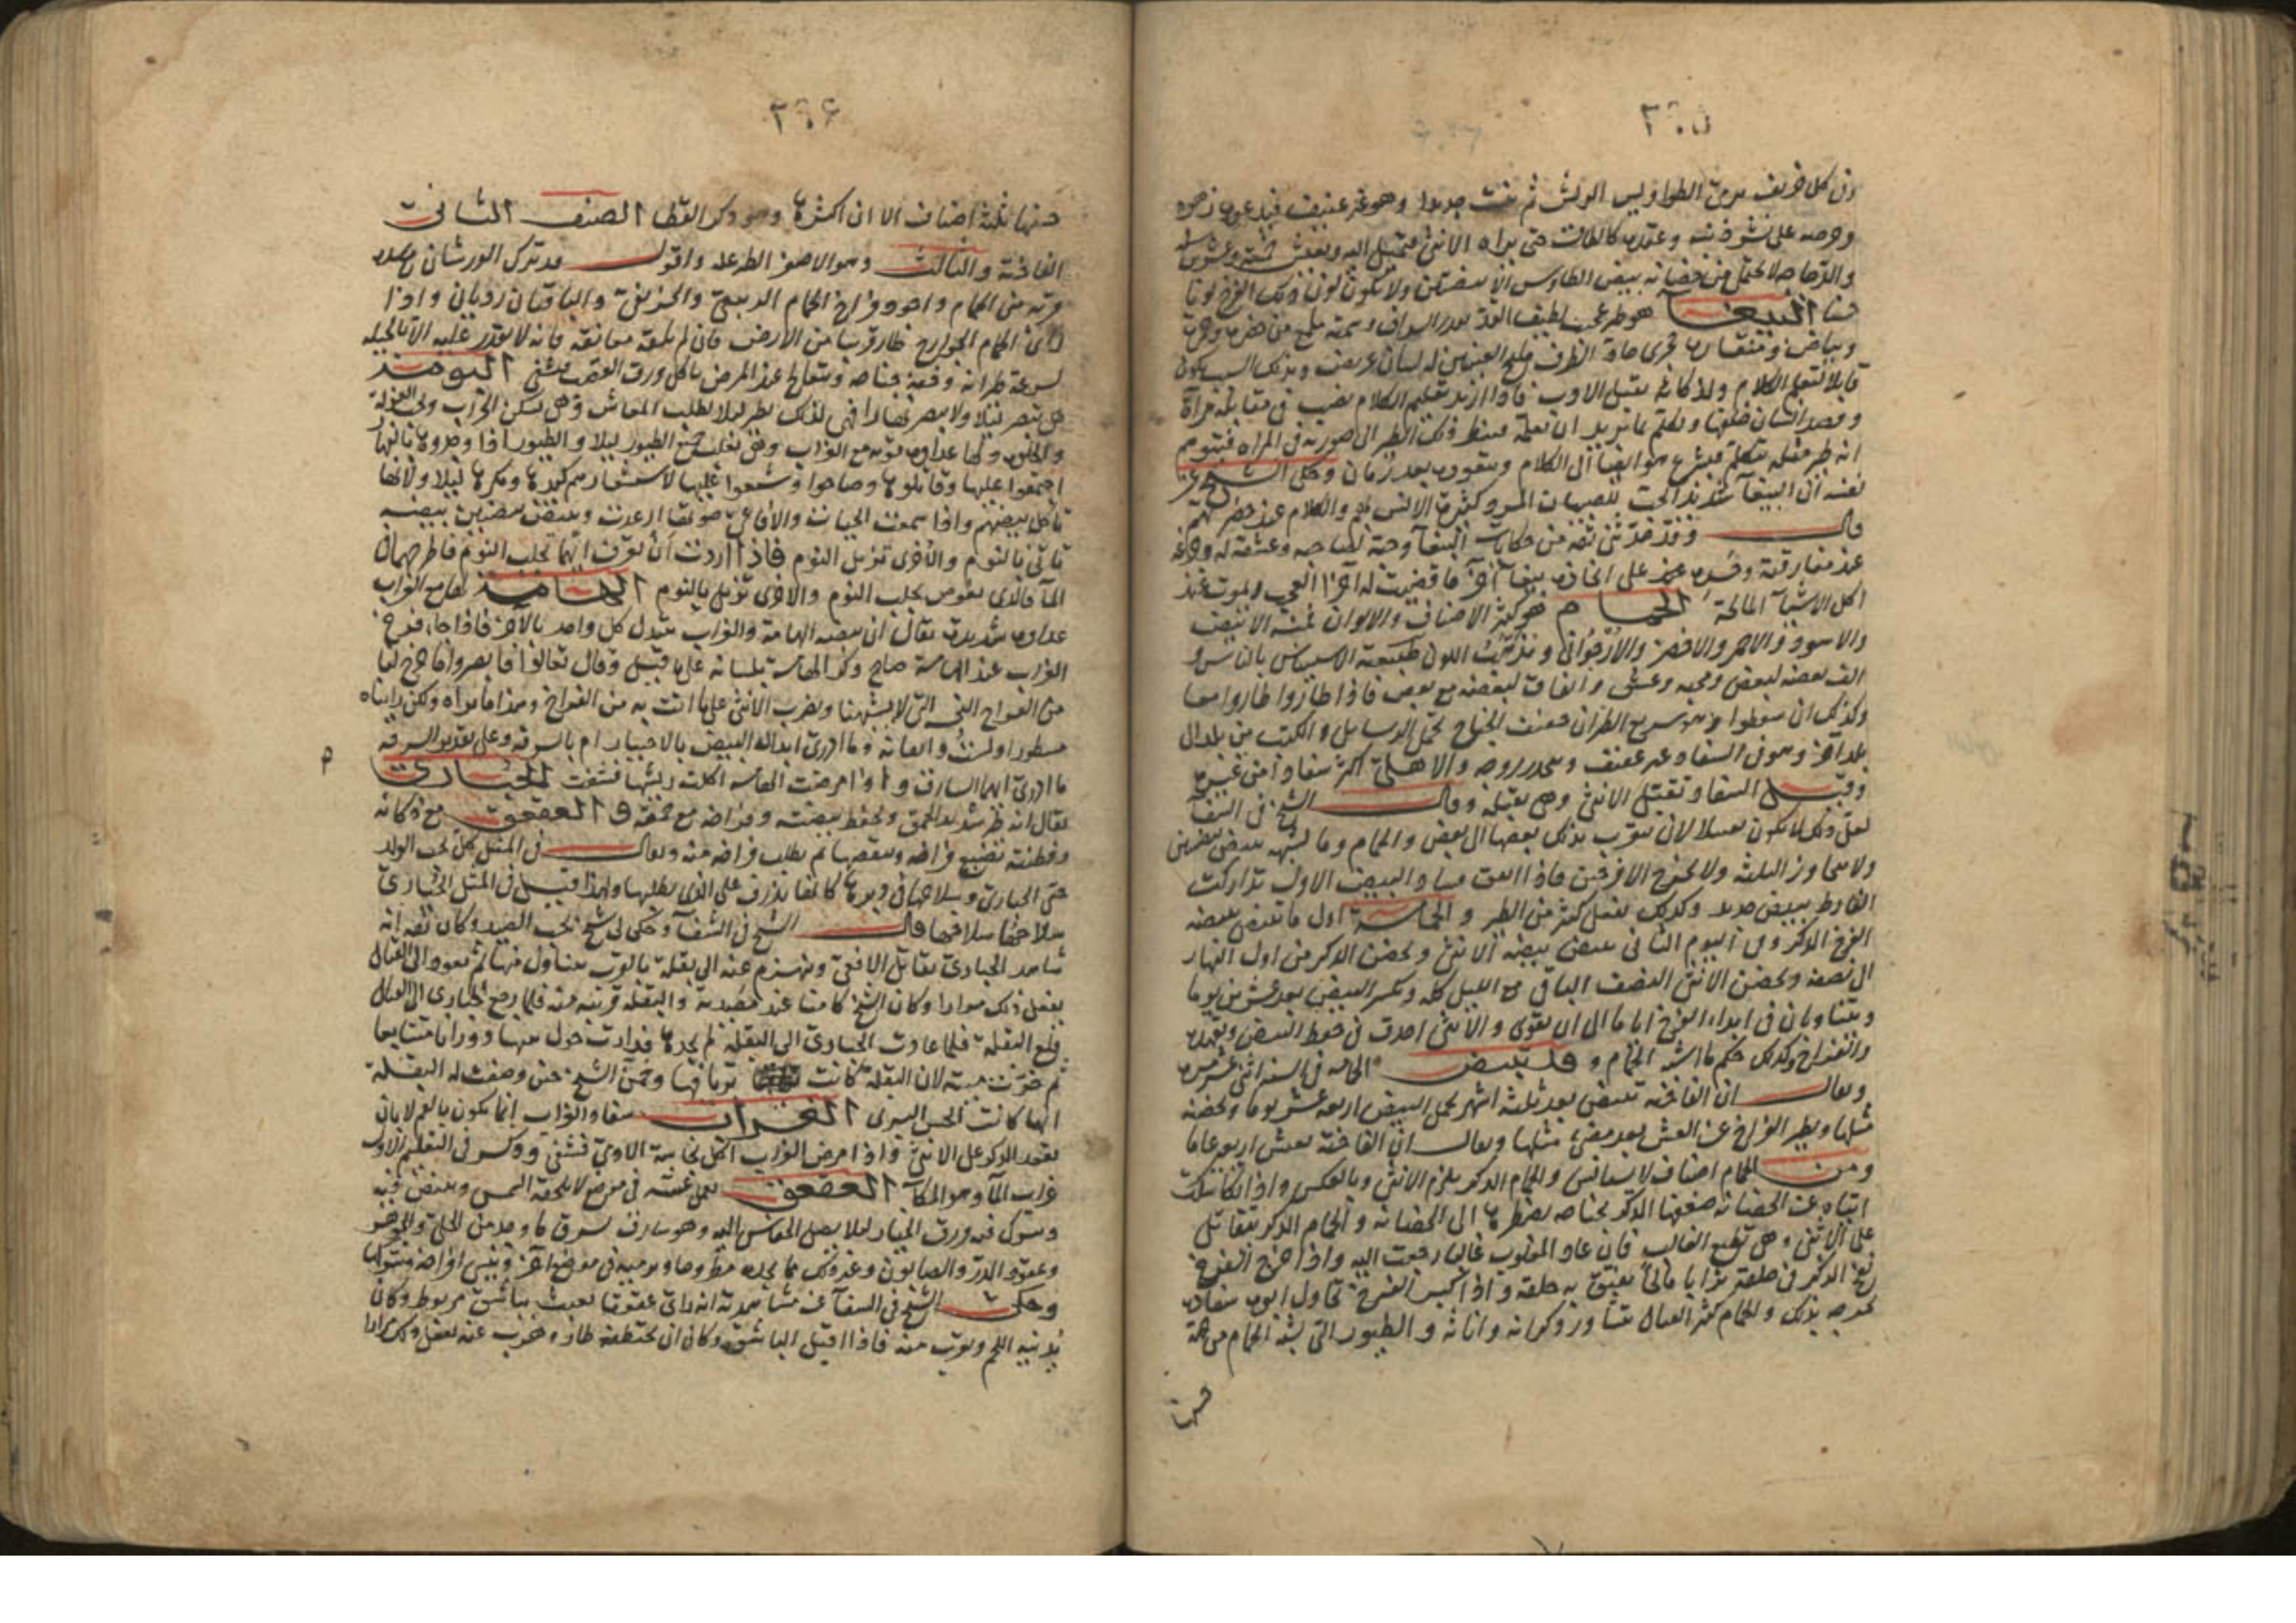 ٢٠٥
وفى كل خريف يرمى الطواويس الريش ثم ينبت جديدا وهو غير عفيف
وحرصه على حتى يراه الانثى فتميل اليه ويعيش خمسة وعشرين
والدجاجة لا تحتمل من حضانة بيض الطاوس الا بيضتين ولا يكون لون ذلك الفرخ لونا
حسنا الببغا هو طير عجيب لطيف القد
وبياض ومنقاره حاد الطرف مليح العينين له لسان عريض وبذلك السبب يكون
قابلا لتعلم الكلام ولذكائه يقبل الادب فاذا اريد تعليم الكلام نصب فى مقابله مراة
وقعد انسان خلفها وتكلم بما يريد ان يعلمه فينظر ذلك الطير الى صورته فى المراه فيتوهم
انه طير مثله يتكلم فيشرع هو ايضا الى الكلام ويتعوده بعد زمان وحكى الشيخ عن
نفسه ان الببغآ شديد الحب للصبيان المرد كثيره الانس بهم والكلام عند حضرتهم
قال وقد حدثنى ثقة من حكايات الببغآ وحبه لصاحبه وعشقه له
عند مفارقته ببغآ آخر ما قضيت له آخر العجب ويموت عند
اكل الاشيآ المالحة الحمام هو كثير الاصناف والالوان فمنه الابيض
والاسود والاحمر والاخضر والارجوانى اللون طبيعته الاستيناس بالناس و
الف بعضه لبعض ومحبه وعشق واتفاق لبعضه مع بعض فاذا طاروا طاروا معا
وكذلك ان سقطوا وهو سريع الطيران خفيف الجناح يحمل الرسايل والكتب من بلد الى
بلد آخر وهو فى السفاد غير عفيف والاهلى اكثر سفادا من غيره
وقبل السفاد تقبل الانثى وهى تقبله وقال الشيخ فى الشفآ
لعل ذلك لا يكون تقبيلا لان يقرب بذلك بعضها الى بعض والحمام وما يشبهه يبيض بيضتين
ولا يتجاوز الثلثة ولا يخرج الا فرخين فاذا اتفق فساد البيض الاول تداركت
الفارط ببيض جديد وكذلك يفعل كثير من الطير والحمامة اول ما تبيض بيضه
الفرخ الذكر وفى اليوم الثانى يبيض بيضه الانثى ويحضن الذكر من اول النهار
الى نصفه ويحضن الانثى النصف الباقى مع الليل كله ويكسر البيض بعد عشرين يوما
ويتناوبان فى ابتداء الفرخ اياما الى ان يقوى والانثى احذق فى حفظ البيض
والفراخ وكذلك حكم ما اشبه الحمام وقد يبيض الحمامه فى السنه اثنى عشر مره
ويقال ان الفاخته تبيض بعد ثلثة اشهر يحمل البيض اربعه عشر يوما وتحضنه
مثلها ويطير الفراخ عن العش بعد مضى مثلها ويقال ان الفاخته يعيش اربعين عاما
ومن الحمام اصناف لا يستانس والحمام الذكر يلزم الانثى وبالعكس واذا تكاسلت
انثاه عن الحضانه ضغطها الذكر بجناحه يضطرها الى الحضانه والحمام الذكر يتقاتل
على الانثى وهى تطيع الغالب فان عاد المغلوب غالبا رجعت اليه واذا خرج الفرخ
نفخ الذكر فى حلقه ترابا مالحا يفتق به حلقه واذا كبر الفرخ تحاول ابوه سفاده
يخرجه بذلك والحمام كثير القتال ذكرانه واناثه والطيور التى يشبه الحمام من جهة
منها
٢٠٦
منها ثلثة اصناف الا ان اكثرها وهو ذكر القطا الصنف الثانى
الفاخته والثالث وهو الاصفر واقول قد ترك الورشان
قريه من الحمام واجود فراخ الحمام الربيعى والخريفى والباقيان رديان واذا
راى الحمام الجوارح طار قريبا من الارض فان لم يلقه معانقه فانه لا يقدر عليه الا بالحيله
لسرعة طيرانه وخفة جناحه ويتعالج عند المرض باكل ورق القصب فيشفى البومه
هى تبصر ليلا ولا يبصر نهارا فهى لذلك يطير ليلا لطلب المعاش وهى يسكن الخراب وتحب العزلة
والخلوه ولها عداوه قويه مع الغراب وهى تغلب جميع الطيور ليلا والطيور اذا وجدوها بالنهار
اجتمعوا عليها وقاتلوها وصاحوا وشنعوا عليها لاستشعارهم كيدها ومكرها ليلا ولانها
تاكل بيضهم واذا سمعت الحيات والافاعى صوتها ارعدت ويبيض بيضتين بيضه
تاتى بالنوم والاخرى تزيل النوم فاذا اردت ان تعرف ايهما تجلب النوم فاطرحهما فى
المآ فالذى يغوص يجلب النوم والاخرى تزيل بالنوم الهامة لها مع الغراب
عداوه شديده يقال ان بيضه الهامة والغراب يتبدل كل واحد بالآخر فاذا جاء فرخ
الغراب عند الهامة صاح ذكر الهامة بلسانه على ما قيل وقال تعالوا فابصروا ما خرج لنا
من الفراخ التى لا يشبهنا ويضرب الانثى على ما اتت به من الفراخ وهذا ما نراه ولكن رايناه
مسطورا ولست وما ادرى ابداله البيض بالاختيار ام بالسرقه وعلى تقدير السرقه
ما ادرى ايهما السارق واذا مرضت الهامة اكلت ريشها فشفت الحبارى
يقال انه طير شديد الحمق ويحفظ بيضته وفراخه مع حمقه والعقعق مع ذكائه
وفطنته يضيع فراخه وبيضه ثم يطلب فراخه منه ويقال فى المثل كل يحب الولد
حتى الحبارى وسلاحها فى دبرها كانها يذرف على الذى يطلبها ولهذا قيل فى المثل الحبارى
سلاحها سلاحها قال الشيخ فى الشفآ وحكى لى شيخ يحب الصيد وكان ثقه انه
شاهد الحبارى يقاتل الافعى وينهزم عنه الى بقلة بالقرب يتناول منها ثم يعود الى القتال
يفعل ذلك مرارا وكان الشيخ كامنا عند مصيده والبقلة قريبه منه فلما رجع الحبارى الى القتال
قلع البقلة فلما عادت الحبارى الى البقلة لم يجدها فدارت حول منبتها دورانا متتابعا
ثم خرت ميته لان البقلة كانت ترياقها وخمن الشيخ حين وصفت له البقلة
انها كانت الخس البرى الغراب سفاد الغراب انما يكون بالفم لا بان
يقعد الذكر على الانثى واذا مرض الغراب اكل نجاسة الآدمى فشفى وذكر فى التعليم الاول
غراب المآ وهو المكآ العقعق يعمل عشه فى موضع لا يلحقه الشمس ويبيض فيه
ويترك فيه ورق الخيار ليلا يصل الخفاش اليه وهو سارق يسرق ما وجد من الحلى والجوهر
وعقود الدر والصابون وغير ذلك مما يجده مطروحا ويرميه فى موضع آخر وينسى افراخه
وحكى الشيخ فى الشفآ عن مشاهدته انه راى عقعقا يعبث بباشق مربوط وكان
يدنيه اللحم ويقرب منه فاذا اقبل الباشق وكان ان يختطفه طار وهرب عنه يفعل ذلك مرارا